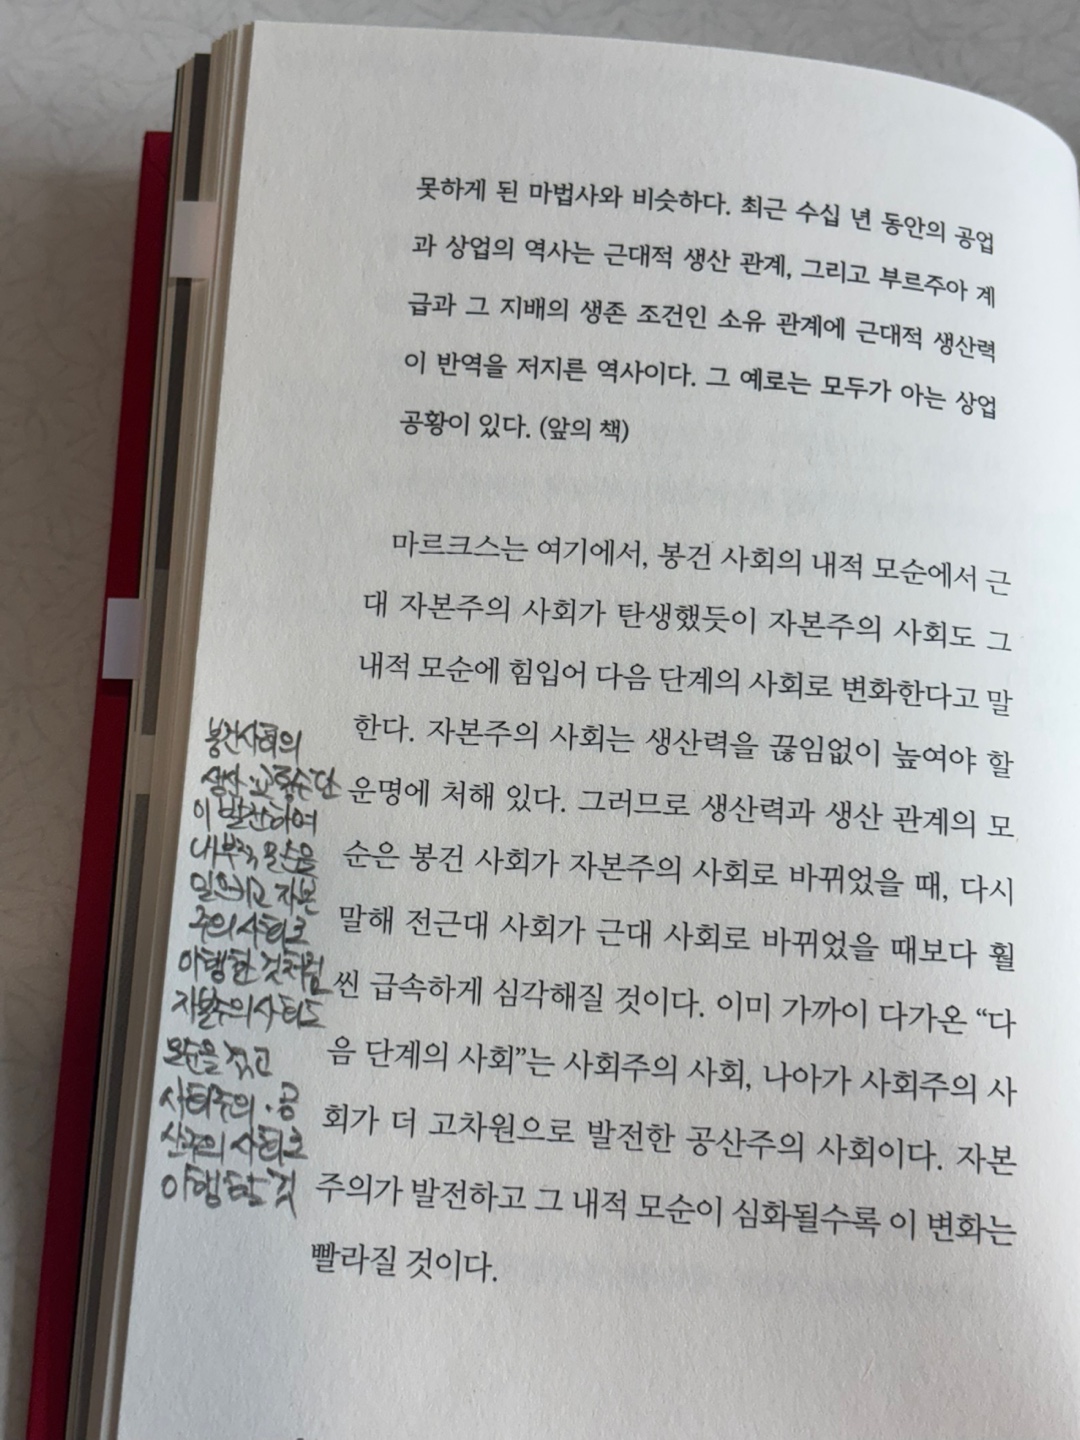 못하게 된 마법사와 비슷하다. 최근 수십 년 동안의 공업
과 상업의 역사는 근대적 생산 관계, 그리고 부르주아 계
급과 그 지배의 생존 조건인 소유 관계에 근대적 생산력
이 반역을 저지른 역사이다. 그 예로는 모두가 아는 상업
공황이 있다. (앞의 책)
마르크스는 여기에서, 봉건 사회의 내적 모순에서 근
대 자본주의 사회가 탄생했듯이 자본주의 사회도 그
내적 모순에 힘입어 다음 단계의 사회로 변화한다고 말
한다. 자본주의 사회는 생산력을 끊임없이 높여야 할
운명에 처해 있다. 그러므로 생산력과 생산 관계의 모
순은 봉건 사회가 자본주의 사회로 바뀌었을 때, 다시
말해 전근대 사회가 근대 사회로 바뀌었을 때보다 훨
씬 급속하게 심각해질 것이다. 이미 가까이 다가온 “다
음 단계의 사회”는 사회주의 사회, 나아가 사회주의 사
회가 더 고차원으로 발전한 공산주의 사회이다. 자본
주의가 발전하고 그 내적 모순이 심화될수록 이 변화는
빨라질 것이다.
봉건사회의
생산·교통수단
이 발전하여
내부적 모순을
일으키고 자본
주의 사회로
이행한 것처럼
자본주의사회도
모순을 겪고
사회주의·공
산주의 사회로
이행할 것